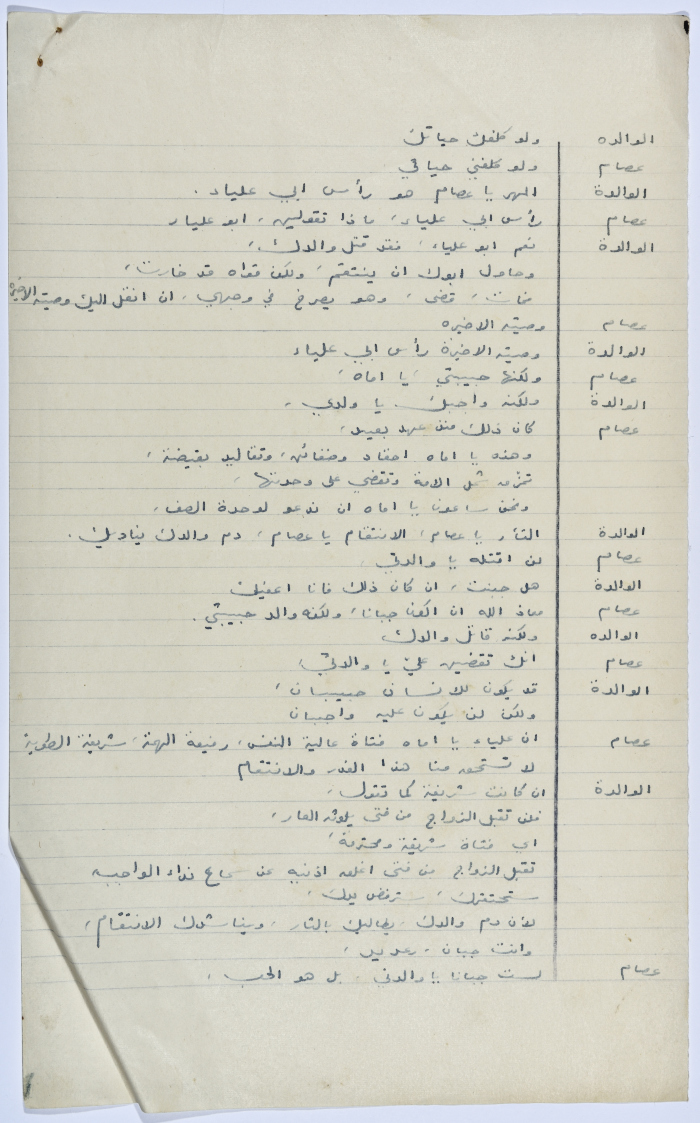 الوالده ولو كلفك حياتك
عصام ولو كلفني حياتي
الوالدة المهر يا عصام هو رأس ابي علياء .
عصام رأس ابي علياء، ماذا تقولين، ابو علياء
الوالدة نعم ابو علياء، فقد قتل والدك،
وحاول ابوك ان ينتقم، ولكن قواه قد خارت،
فمات، قضى، وهو يصرخ في وجهي، ان انقل اليك وصيته الاخيرة
عصام وصيته الاخيره
الوالدة وصيته الاخيرة رأس ابي علياء
عصام ولكنها حبيبتي يا اماه،
الوالدة ولكنه واجبك يا ولدي،
عصام كان ذلك منذ عهد بعيد،
وهذه يا اماه احقاد وضغائن، وتقاليد بغيضة،
تمزق شمل الامة وتقضي على وحدتها،
ونحن ساعون يا اماه ان ندعو لوحدة الصف،
الوالدة الثأر يا عصام، الانتقام يا عصام، دم والدك يناديك .
عصام لن اقتله يا والدتي
الوالدة هل جبنت، ان كان ذلك فانا اعفيك
عصام معاذ الله ان اكون جبانا، ولكنه والد حبيبتي .
الوالده ولكنه قاتل والدك
عصام انك تقضين علي يا والدتي،
الوالدة قد يكون للانسان حبيبان،
ولكن لن يكون عليه واجبان
عصام ان علياء يا اماه فتاة عالية النفس، رفيعة الهمة، شريفة الطوية
لا تستحق منا هذا الغدر والانتقام
الوالدة ان كانت شريفة كما تقول،
فلن تقبل الزواج من فتى يلوثه العار،
اي فتاة شريفة ومحترمة،
تقبل الزواج من فتى اغلق اذنيه عن سماع نداء الواجب
ستحتقرك، سترفض يدك،
لأن دم والدك يطالبك بالثار، ويناشدك الانتقام،
وانت جبان، رعديد،
عصام لست جبانا يا والدتي، بل هو الحب،